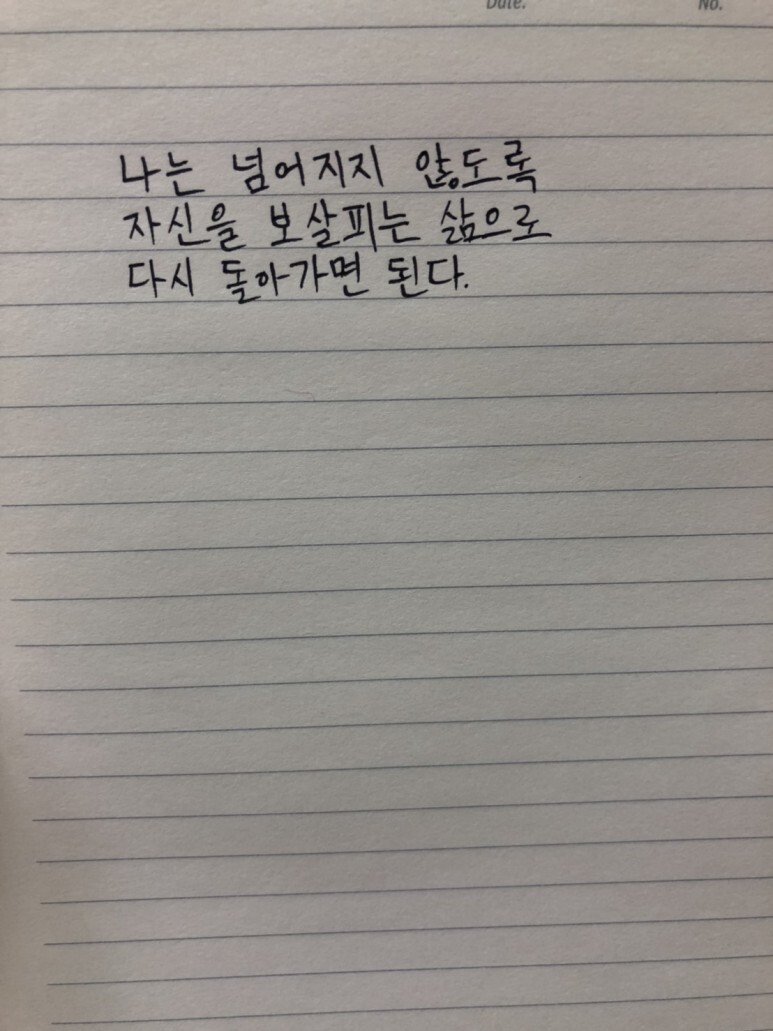 Date.
No.
나는 넘어지지 않도록
자신을 보살피는 삶으로
다시 돌아가면 된다.